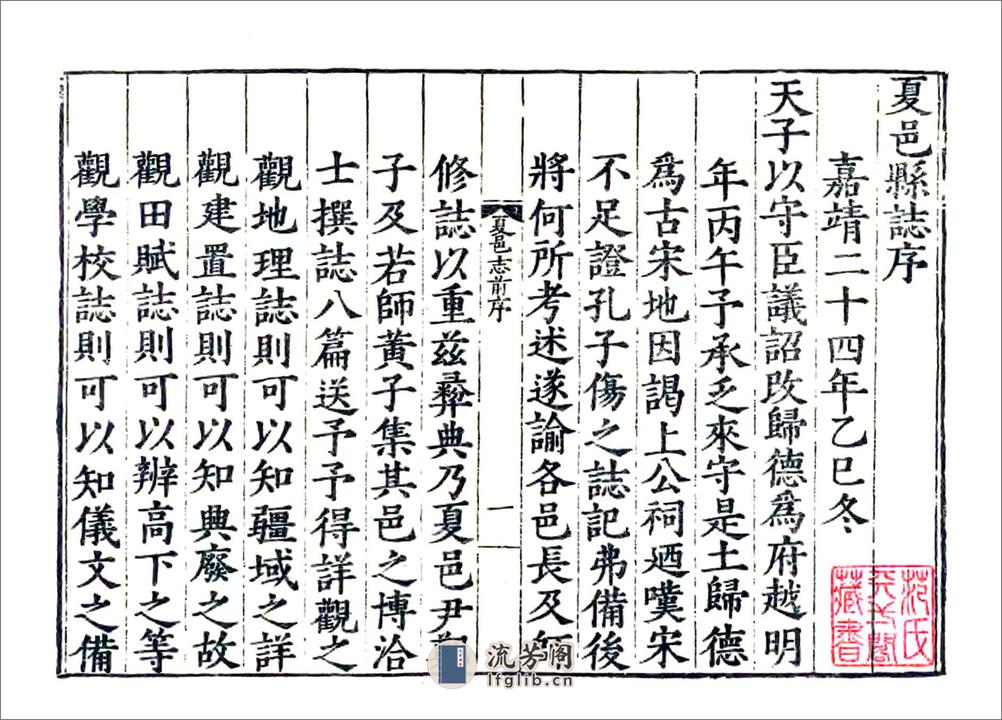 夏邑縣誌序
嘉靖二十四年乙巳冬
天子以守臣議詔改歸德爲府越明
年丙午予承乏來守是土歸德
爲古宋地因謁上公祠廼嘆宋
不足證孔子傷之誌記弗備後
將何所考述遂諭各邑長及師
夏邑志前序
一
修誌以重茲彛典乃夏邑尹鄭
子及若師黄子集其邑之博洽
士撰誌八篇送予予得詳觀之
觀地理誌則可以知疆域之詳
觀建置誌則可以知典廢之故
觀田賦誌則可以辨高下之等
觀學校誌則可以知儀文之備
范氏
天一閣
藏書
流芳阁
lfglib.cn